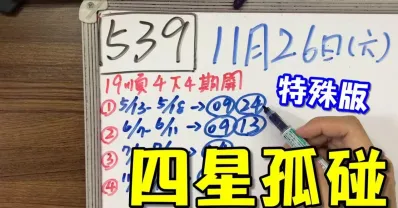 539 11月26日(六)
19順4下4期開
特殊版
① 5/13-5/18→09 24
② 6/7-6/11→09 13
③
④
四星孤碰